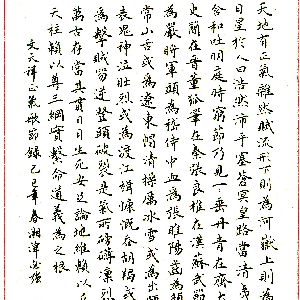 天地有正氣雜然賦流形下則為河嶽上則為
日星於人曰浩然沛乎塞蒼冥皇路當清夷
含和吐明庭時窮節乃見一垂丹青在齊太
史簡在晉董狐筆在秦張良椎在漢蘇武節
為嚴將軍頭為嵇侍中血為張睢陽齒為顏
常山舌或為遼東帽清操厲冰雪或為出師
表鬼神泣壯烈或為渡江楫慷慨吞胡羯或
為擊賊笏逆豎頭破裂是氣所磅礴凜烈
萬古存當其貫日月生死安足論地維賴以立
天柱賴以尊三綱實繫命道義為之根
文天祥正氣歌節錄己巳年春湘潭